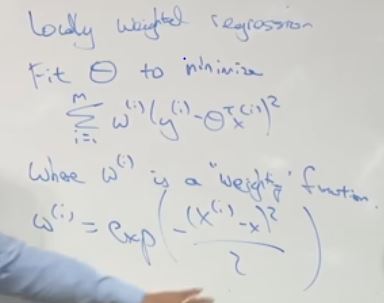 Locally weighted regression
Fit Θ to minimize
M
Σ w^(i) (y^(i) - Θ^T x^(i))^2
i=1
Where w^(i) is a "weighting" function.
w^(i) = exp( -(x^(i) - x)^2 / 2 )